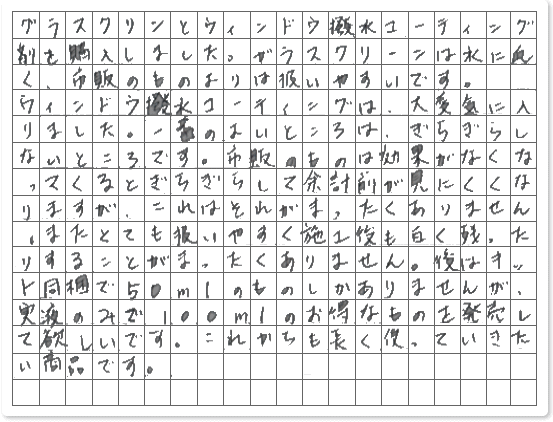 グラスクリンとウィンドウ撥水コーティング
剤を購入しました。がラスクリーンは水に
く、市販のものよりは扱いやすいです。
ウィンドウ撥水コーティングは、大変気に入
りました。一番のよいところは、ぎらぎらし
ないところです。市販のものは効果がなくな
ってくるとぎらぎらして余計前が見にくくな
りますが、これはそれがまったくありません
。またとても扱いやすく施工後も白く残った
りすることがまったくありません。後はキッ
ト同梱で50mlのものしかありませんが、
実液のみで100mlのお得なものを発売し
て欲しいです。これからも長く使っていきた
い商品です。